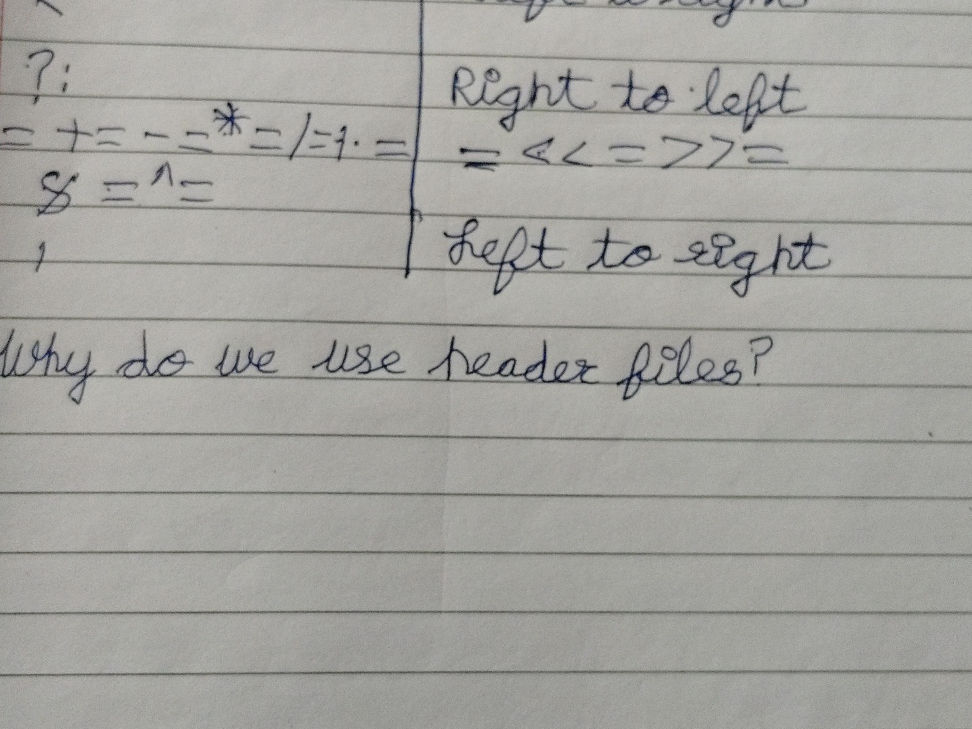 ?: Right to left
= += -= *= /= %= = <<= >>=
& = ^=
, Left to right
Why do we use header files?